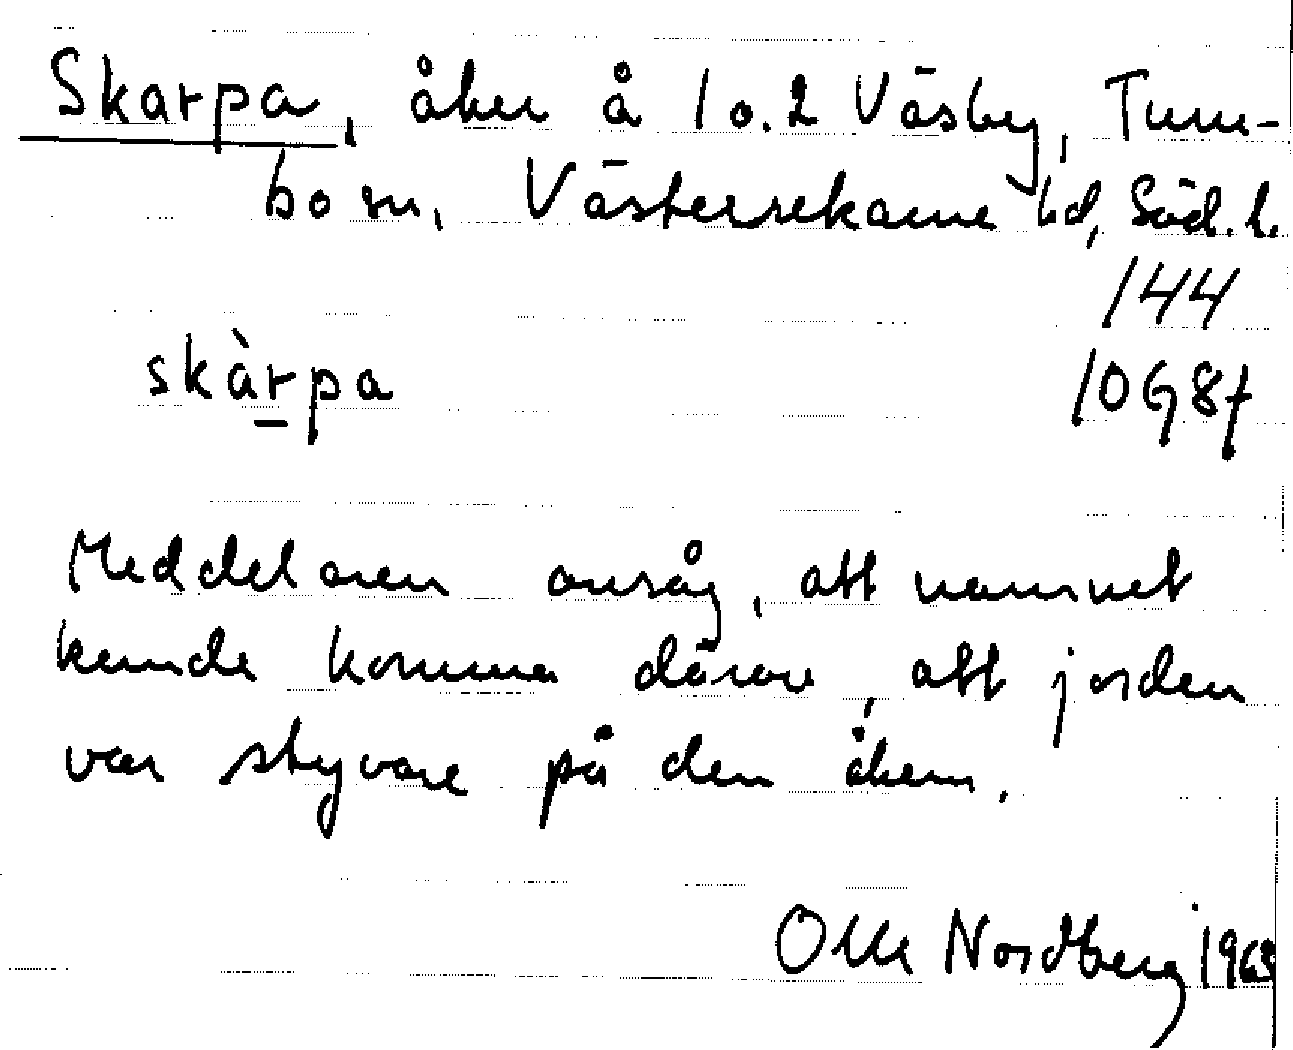 Skarpa, åker å 1 o. 2 Väsby, Tum-
bo sn, Västerrekarne hd, Söd. l.
144
skàrpa 10G8f
Meddelaren ansåg, att namnet
kunde komma därav, att jorden
var styvare på den åkern.
Olle Nordberg 1963